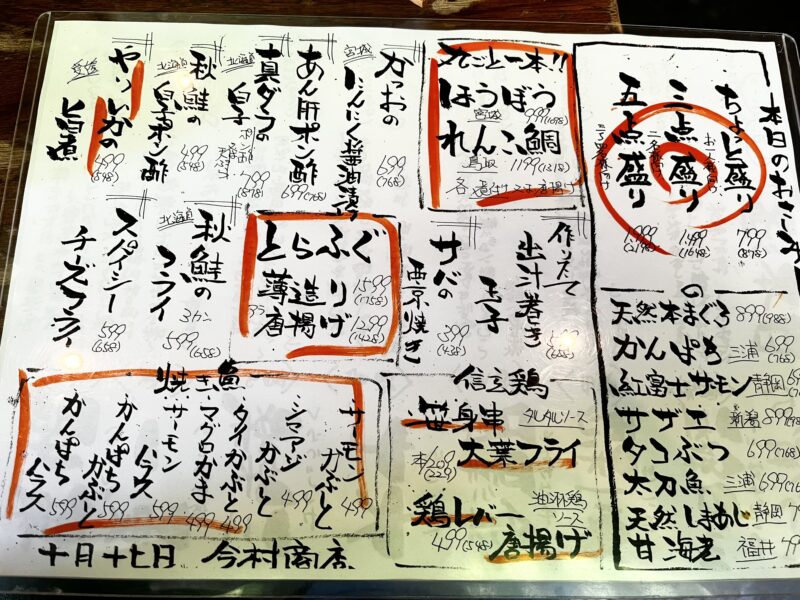 本日のおさしみ
ちょこっと盛り 799(878)
三点盛り 1499(1648)
五点盛り 1999(2198)
天然本まぐろ 899(988)
かんぱち 三浦 699(768)
紅富士サーモン 静岡
サザエ 新潟 899(988)
タコぶつ 699(768)
太刀魚 三浦 699
天然しまあじ 静岡
甘海老 福井
丸ごと一本!!
ほうぼう
宮城 999(1098)
れんこ鯛
鳥取 1199(1318)
かつおの
にんにく醤油漬け
宮城
699(768)
あん肝ポン酢
699(768)
北海道
真ダラの
白子
799(878)
北海道
秋鮭の
白子ポン酢
499(548)
やりいかの
旨煮
愛媛
499(548)
作りたて
出汁巻き
玉子
599(658)
サバの
西京焼き
399(438)
とらふぐ
薄造り 1599(1758)
唐揚げ 1299(1428)
北海道
秋鮭の
フライ
3カン
599(658)
スパイシー
チーズフライ
599(658)
信玄鶏
笹身串
タルタルソース
大葉フライ
本/209(229)
鶏レバー
油淋鶏ソース
唐揚げ
499(548)
焼き魚
サーモンかぶーと 499
シマアジかぶーと 499
タイかぶーと 499
マグロかま 499
サーモンハラス 599
かんぱちかぶーと 599
かんぱちハラス 599
十月十七日 今村商店